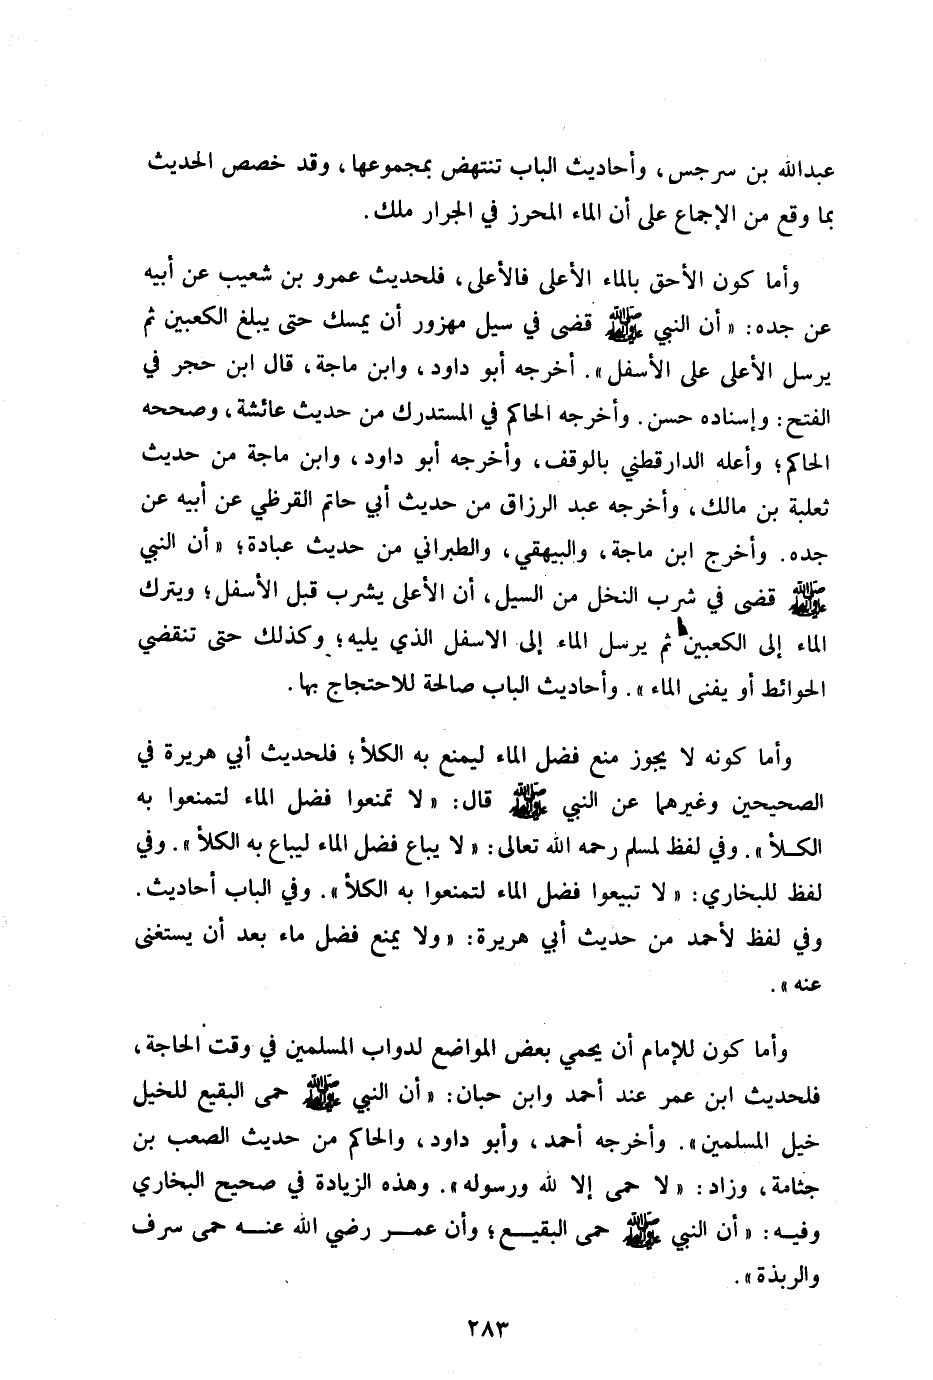 عبدالله بن سرجس، وأحاديث الباب تنتهض بمجموعها، وقد خصص الحديث
بما وقع من الإجماع على أن الماء المحرز في الجرار ملك.
وأما كون الأحق بالماء الأعلى فالأعلى، فلحديث عمرو بن شعيب عن أبيه
عن جده: «أن النبي ﷺ قضى في سيل مهزور أن يمسك حتى يبلغ الكعبين ثم
يرسل الأعلى على الأسفل». أخرجه أبو داود، وابن ماجة، قال ابن حجر في
الفتح: وإسناده حسن. وأخرجه الحاكم في المستدرك من حديث عائشة، وصححه
الحاكم؛ وأعله الدارقطني بالوقف، وأخرجه أبو داود، وابن ماجة من حديث
ثعلبة بن مالك، وأخرجه عبد الرزاق من حديث أبي حاتم القرظي عن أبيه عن
جده. وأخرج ابن ماجة، والبيهقي، والطبراني من حديث عبادة؛ «أن النبي
ﷺ قضى في شرب النخل من السيل، أن الأعلى يشرب قبل الأسفل؛ ويترك
الماء إلى الكعبين ثم يرسل الماء إلى الاسفل الذي يليه؛ وكذلك حتى تنقضي
الحوائط أو يفنى الماء». وأحاديث الباب صالحة للاحتجاج بها.
وأما كونه لا يجوز منع فضل الماء ليمنع به الكلأ؛ فلحديث أبي هريرة في
الصحيحين وغيرهما عن النبي ﷺ قال: «لا تمنعوا فضل الماء لتمنعوا به
الكلأ». وفي لفظ لمسلم رحمه الله تعالى: «لا يباع فضل الماء ليباع به الكلأ». وفي
لفظ للبخاري: «لا تبيعوا فضل الماء لتمنعوا به الكلأ». وفي الباب أحاديث.
وفي لفظ لأحمد من حديث أبي هريرة: «ولا يمنع فضل ماء بعد أن يستغنى
عنه».
وأما كون للإمام أن يحمي بعض المواضع لدواب المسلمين في وقت الحاجة،
فلحديث ابن عمر عند أحمد وابن حبان: «أن النبي ﷺ حمى البقيع للخيل
خيل المسلمين». وأخرجه أحمد، وأبو داود، والحاكم من حديث الصعب بن
جثامة، وزاد: «لا حمى إلا لله ورسوله». وهذه الزيادة في صحيح البخاري
وفيه: «أن النبي ﷺ حمى البقيع؛ وأن عمر رضي الله عنه حمى سرف
والربذة».
٢٨٣